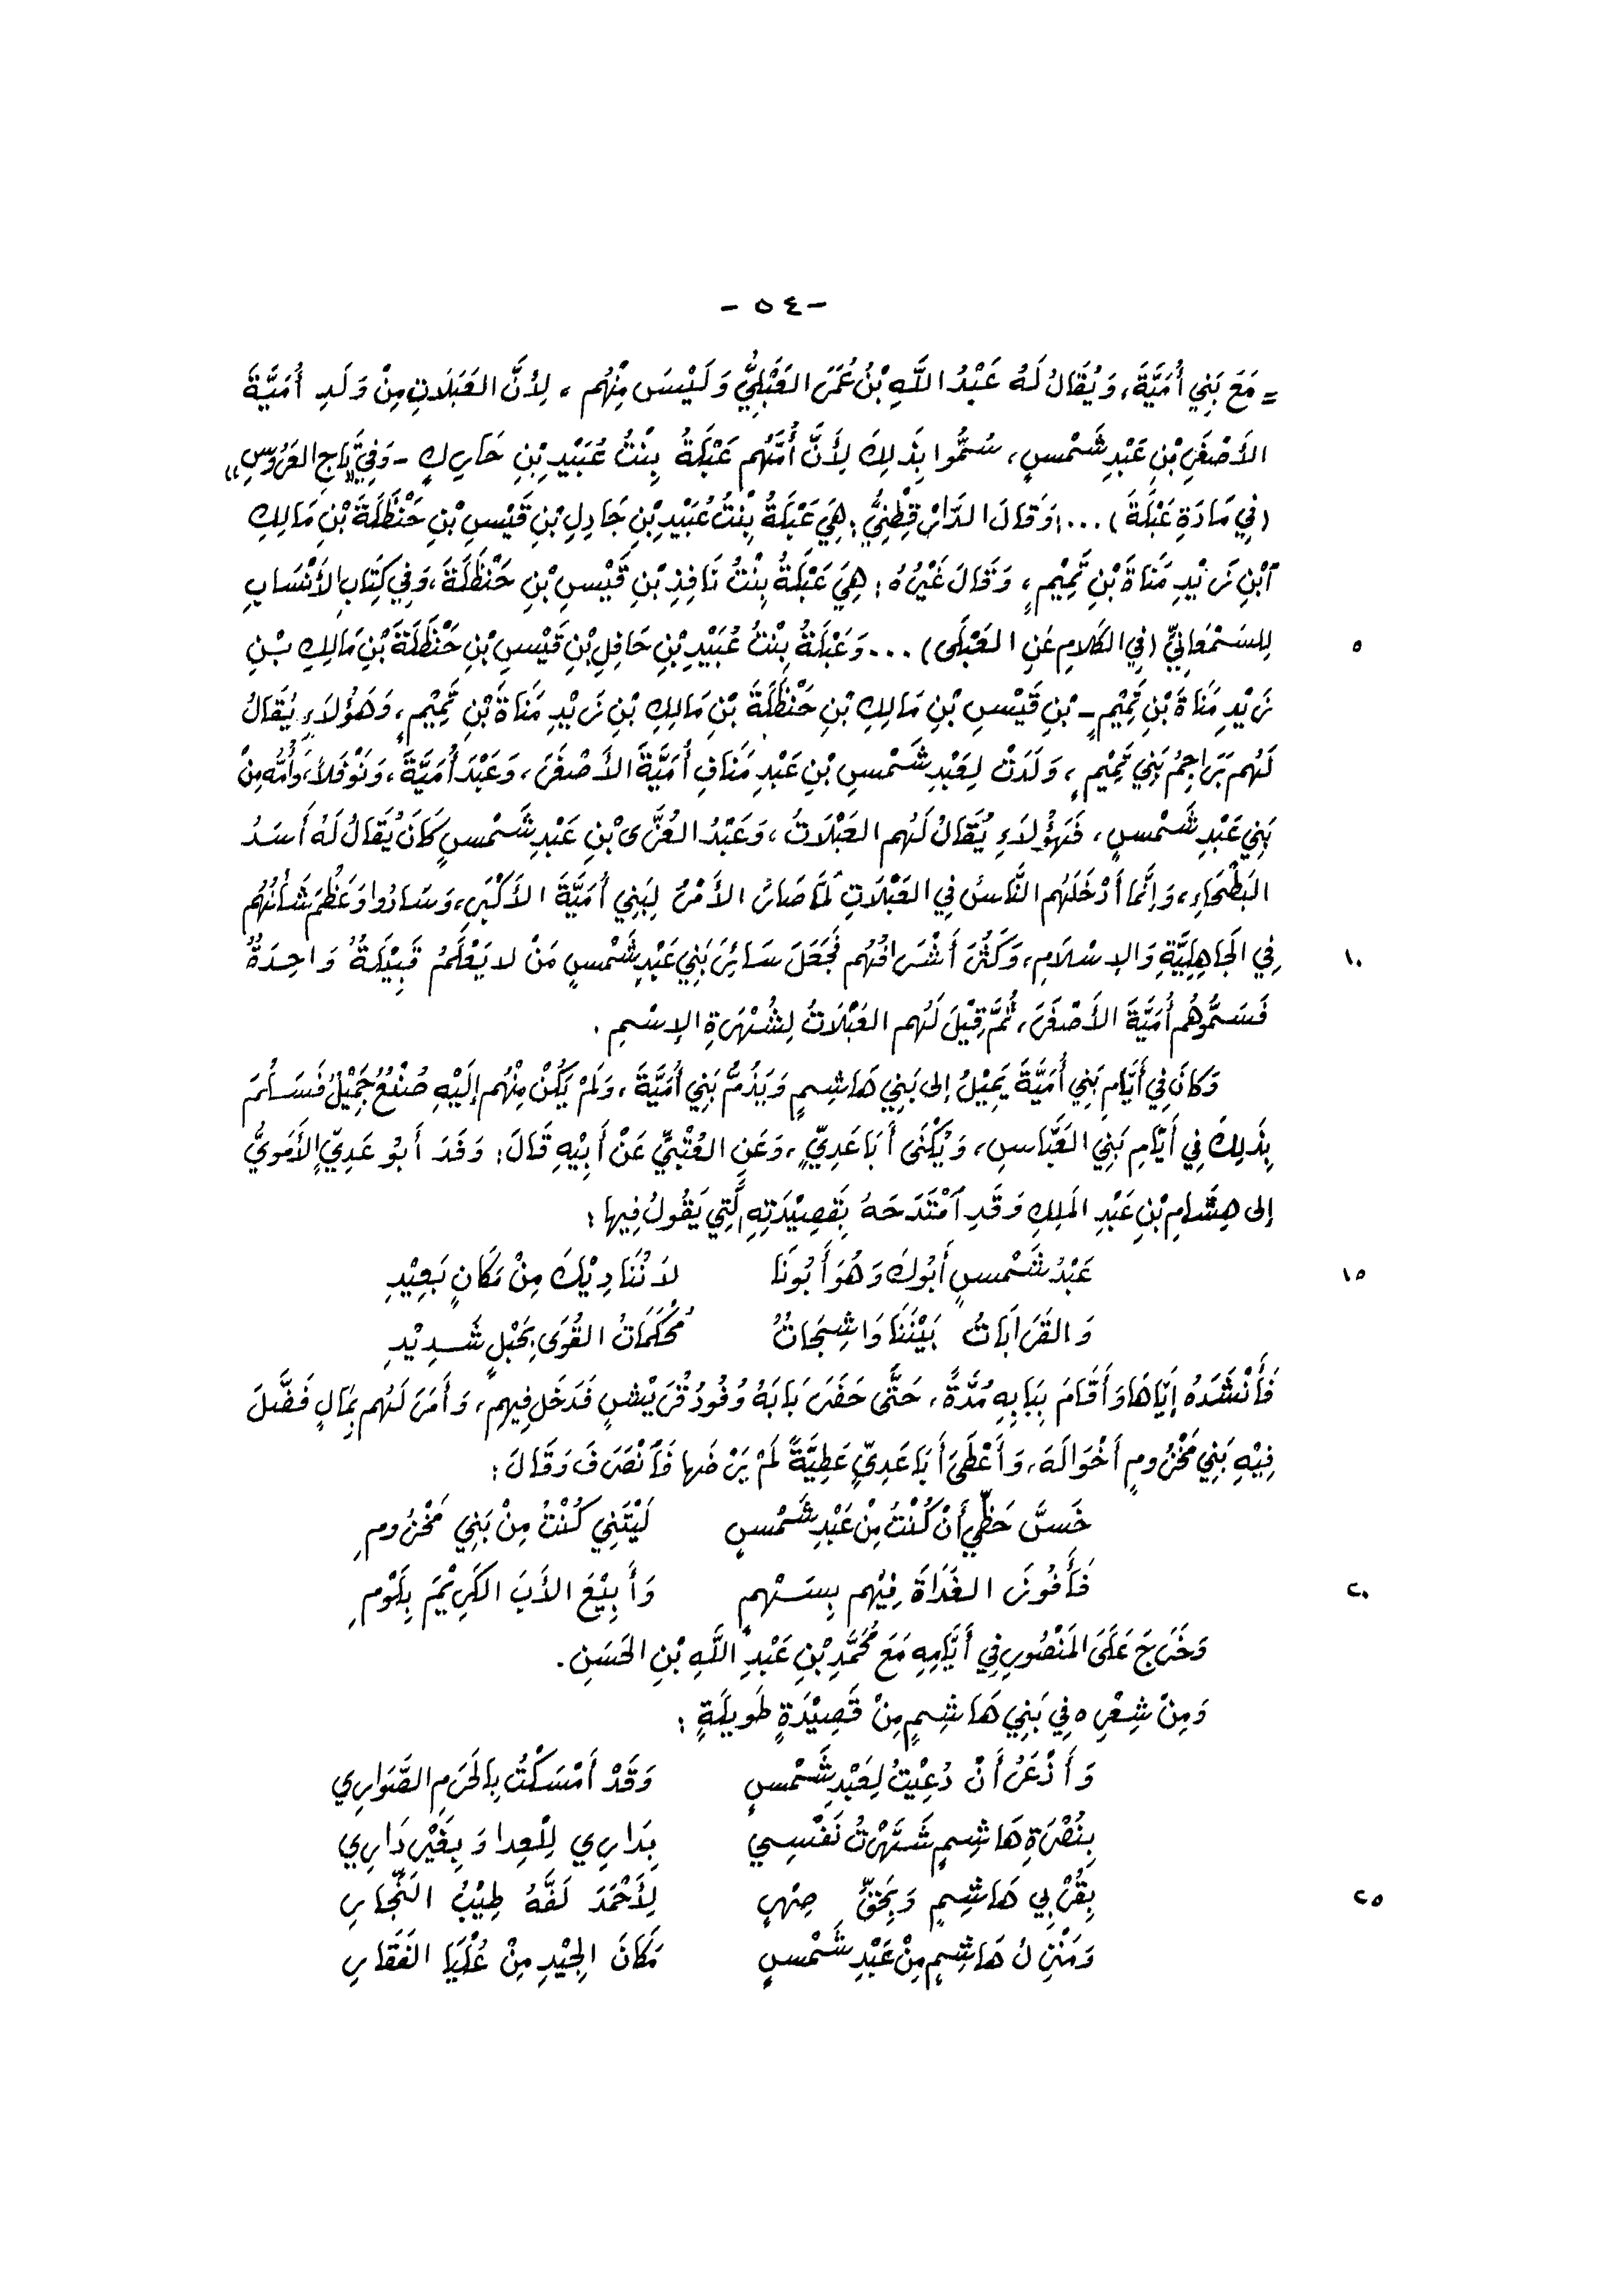 - ٥٤ -
= مَعَ بَنِي أُمَيَّةَ، وَيُقَالُ لَهُ عَبْدُ اللَّهِ بْنُ عُمَرَ العَبْلِيُّ وَلَيْسَ مِنْهُم، لِأَنَّ العَبَلَاتِ مِنْ وَلَدِ أُمَيَّةَ
الأَصْغَرِ بْنِ عَبْدِ شَمْسٍ، سُمُّوا بِذَلِكَ لِأَنَّ أُمَّهُم عَبْلَةُ بِنْتُ عُبَيْدِ بْنِ حَارِكٍ - وَفِي «تَاجِ العَرُوسِ»
(فِي مَادَةِ عَبْلَةَ) ... : وَقَالَ الدَّارَ قِطْنِيُّ: هِيَ عَبْلَةُ بِنْتُ عُبَيْدِ بْنِ جَادِلِ بْنِ قَيْسِ بْنِ حَنْظَلَةَ بْنِ مَالِكِ
ٱبْنِ زَيْدِ مَنَاةَ بْنِ تَمِيْمٍ، وَقَالَ غَيْرُهُ: هِيَ عَبْلَةُ بِنْتُ نَافِذِ بْنِ قَيْسِ بْنِ حَنْظَلَةَ، وَفِي كِتَابِ الأَنْسَابِ
٥ لِلسَمْعَانِيِّ (فِي الكَلَامِ عَنِ العَبْلَى) ... وَعَبْلَةُ بِنْتُ عُبَيْدِ بْنِ حَافِلِ بْنِ قَيْسِ بْنِ حَنْظَلَةَ بْنِ مَالِكِ بْنِ
زَيْدِ مَنَاةَ بْنِ تَمِيْمٍ - بْنِ قَيْسِ بْنِ مَالِكِ بْنِ حَنْظَلَةَ بْنِ مَالِكِ بْنِ زَيْدِ مَنَاةَ بْنِ تَمِيْمٍ، وَهَؤُلَاءِ يُقَالُ
لَهُم بَرَاجِمُ بَنِي تَمِيْمٍ، وَلَدَتْ لِعَبْدِ شَمْسِ بْنِ عَبْدِ مَنَافِ أُمَيَّةَ الأَصْغَرَ، وَعَبْدَ أُمَيَّةَ، وَنَوْفَلاً، وَأُمُّه مِنْ
بَنِي عَبْدِ شَمْسٍ، فَهَؤُلَاءِ يُقَالُ لَهُم العَبْلَاتُ، وَعَبْدُ العُزَّى بْنِ عَبْدِ شَمْسٍ كَانَ يُقَالُ لَهُ أَسَدُ
البَطْحَاءِ، وَإِنَّمَا أَدْخَلَهُم النَّاسُ فِي العَبْلَاتِ لَمَّا صَارَ الأَمْرُ لِبَنِي أُمَيَّةَ الأَكْبَرِ، وَسَادُوا وَعَظُمَ شَأْنُهُم
١٠ فِي الجَاهِلِيَّةِ وَالإِسْلَامِ، وَكَثُرَ أَشْرَافُهُم فَجَعَلَ سَائِرَ بَنِي عَبْدِ شَمْسٍ مَنْ لا يَعْلَمُ قَبِيْلَةً وَاحِدَةً
فَسَمُّوهُم أُمَيَّةَ الأَصْغَرَ، ثُمَّ قِيْلَ لَهُم العَبْلَاتُ لِشُهْرَةِ الإِسْمِ.
وَكَانَ فِي أَيَّامِ بَنِي أُمَيَّةَ يَمِيْلُ إلى بَنِي هَاشِمٍ وَيَذُمُّ بَنِي أُمَيَّةَ، وَلَمْ يَكُنْ مِنْهُم إِلَيْهِ صُنْعٌ جَمِيْلٌ فَسَلُمَ
بِذَلِكَ فِي أَيَّامِ بَنِي العَبَّاسِ، وَيُكْنَى أَبَا عَدِيٍّ، وَعَنِ العُتْبِيِّ عَنْ أَبِيْهِ قَالَ: وَفَدَ أَبُو عَدِيٍّ الأَمَوِيُّ
إلى هِشَامِ بْنِ عَبْدِ المَلِكِ وَقَدِ ٱمْتَدَحَهُ بِقَصِيْدَتِهِ الَّتِي يَقُولُ فِيها:
١٥ عَبْدُ شَمْسٍ أَبُوكَ وَهُوَ أَبُونَا لاَ نُنَادِيْكَ مِنْ مَكَانٍ بَعِيْدِ
وَالقَرَابَاتُ بَيْنَنَا وَاشِجَاتٌ مُحْكَمَاتُ القُوَى بِحَبْلٍ شَدِيْدِ
فَأَنْشَدَهُ إِيَّاهَا وَأَقَامَ بِبَابِهِ مُدَّةً، حَتَّى حَضَرَ بَابَهُ وُفُودُ قُرَيْشٍ فَدَخَلَ فِيهِم، وَأَمَرَ لَهُم بِمَالٍ فَضَّلَ
فِيْهِ بَنِي مَخْزُومٍ أَخْوَالَهُ، وَأَعْطَى أَبَا عَدِيٍّ عَطِيَّةً لَمْ يَرْضَها فَٱنْصَرَفَ وَقَالَ:
خَسَّ حَظِّي أَنْ كُنْتُ مِنْ عَبْدِ شَمْسٍ لَيْتَنِي كُنْتُ مِنْ بَنِي مَخْزُومِ
٢٠ فَأَفُوزَ الغَدَاةَ فِيْهِم بِسَهْمٍ وَأَبِيْعَ الأَبَ الكَرِيْمَ بِلَوْمِ
وَخَرَجَ عَلَى المَنْصُورِ فِي أَيَّامِهِ مَعَ مُحَمَّدِ بْنِ عَبْدِ اللَّهِ بْنِ الحَسَنِ.
وَمِنْ شِعْرِهِ فِي بَنِي هَاشِمٍ مِنْ قَصِيْدَةٍ طَوِيلَةٍ:
وَأَذْعَرُ أَنْ دُعِيْتُ لِعَبْدِ شَمْسٍ وَقَدْ أَمْسَكْتُ بِالحَرَمِ الصَّوَارِي
بِنُصْرَةِ هَاشِمٍ شَهَرْتُ نَفْسِي بِدَارِي لِلْعِدا وَبِغَيْرِ دَارِي
٢٥ بِقُرْبِي هَاشِمٍ وَبِحَقِّ صِهْرٍ لِأَحْمَدَ لَفَّهُ طِيْبُ النِّجَارِ
وَمَنْزِلُ هَاشِمٍ مِنْ عَبْدِ شَمْسٍ مَكَانَ الجِيْدِ مِنْ عُلْيَا الفَقَارِ